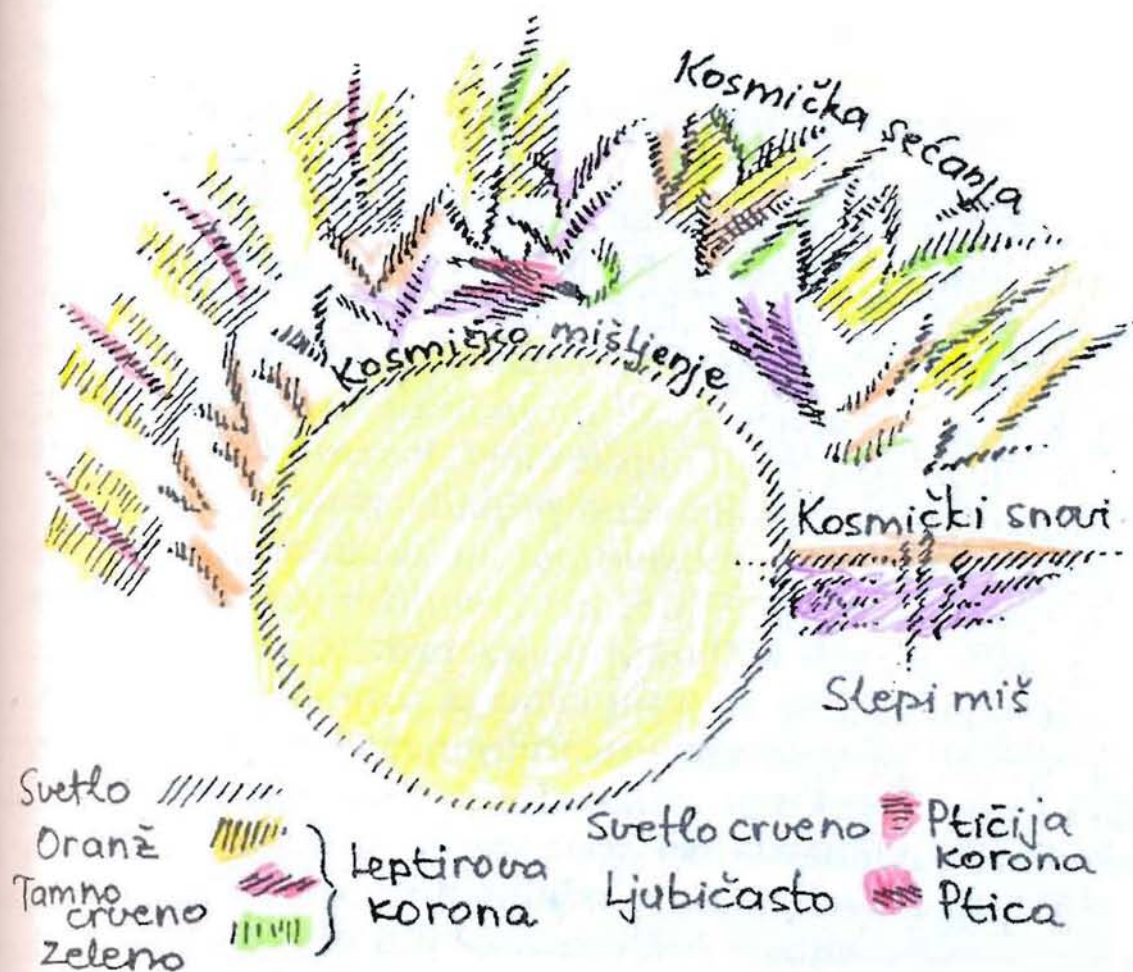 Kosmička sećanja
Kosmičko mišljenje
Kosmički snovi
Slepi miš
Svetlo
Oranž
Tamno
crveno
Zeleno
Leptirova
korona
Svetlo crveno
Ljubičasto
Ptičija
korona
Ptica